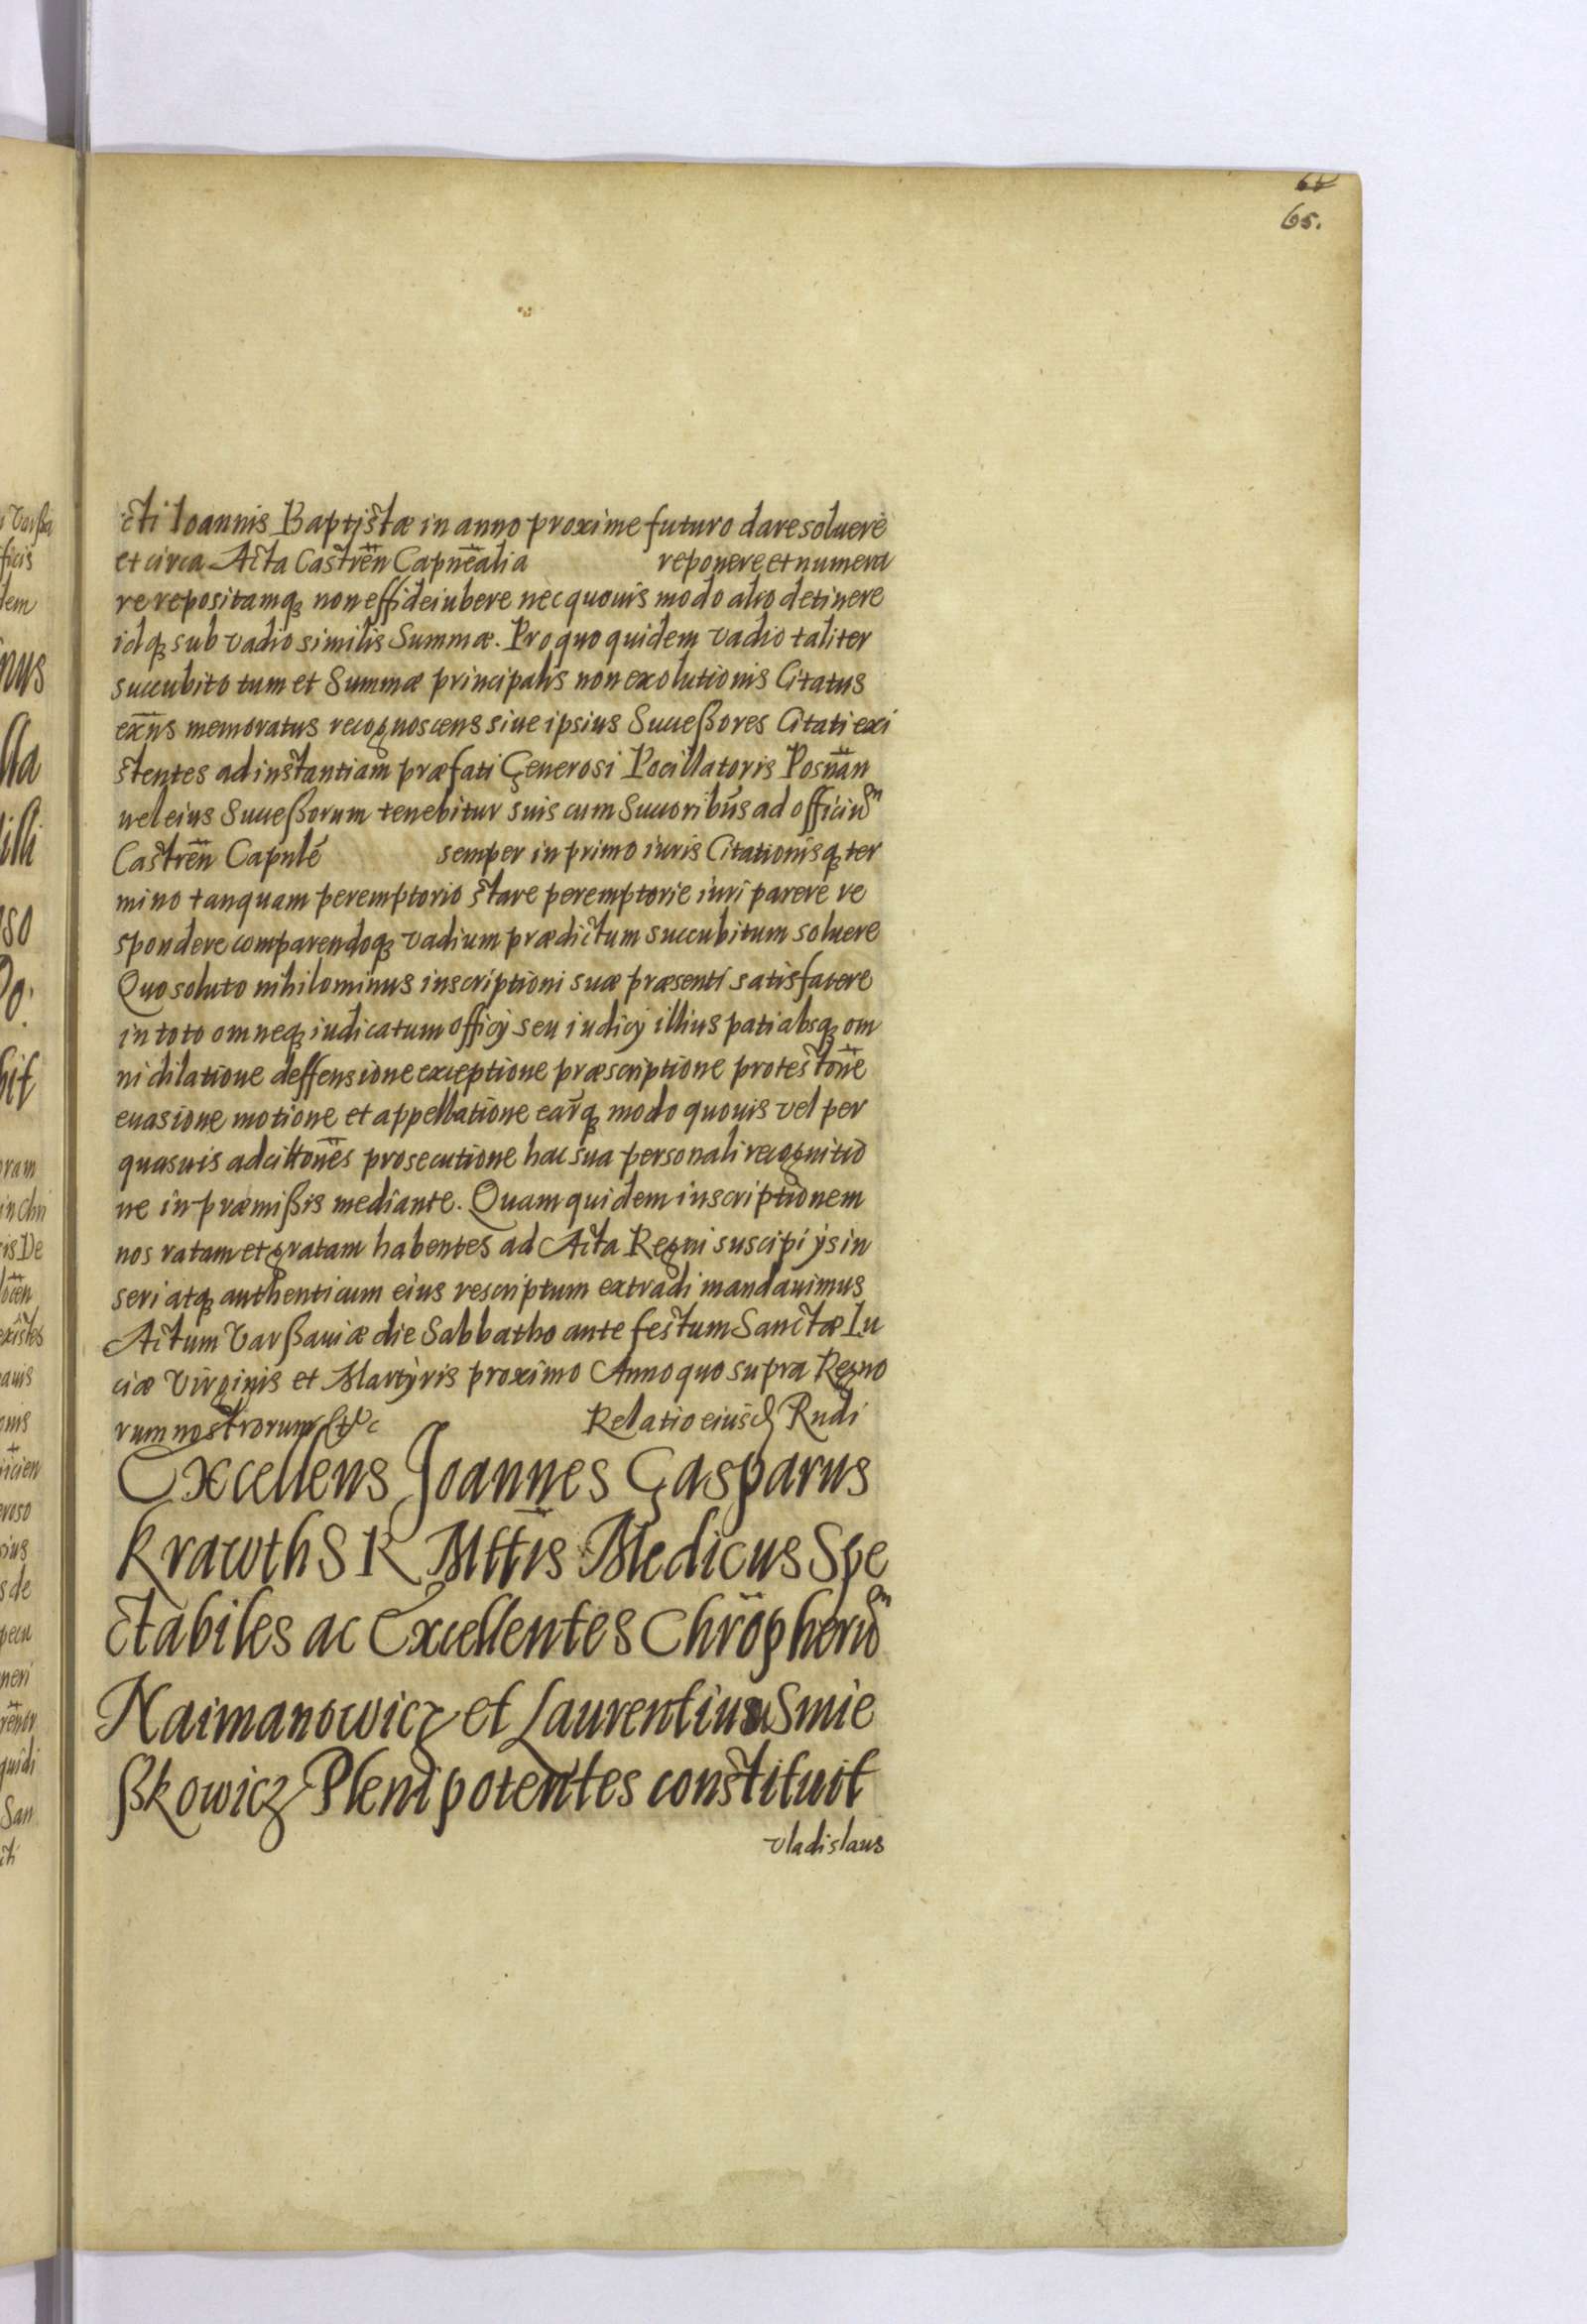 65.
cti Ioannis Baptistæ in anno proxime futuro dare soluere
et circa Acta Castreñ Capnealia reponere et numera
re repositamq; non effideiubere nec quouis modo alio detinere
idq; sub vadio similis Summæ. Pro quo quidem vadio taliter
succubito tum et Summæ principalis non exolutionis Citatus
exñs memoratus recognoscens siue ipsius Succeßores Citati exi
stentes ad instantiam præfati Generosi Pocillatoris Posnañ
uel eius Succeßorum tenebitur suis cum Succoribus ad officium
Castreñ Capnlé semper in primo iuris Citationisq; ter
mino tanquam peremptorio stare peremptorie iuri parere re
spondere comparendoq; vadium prædictum succubitum soluere
Quo soluto nihilominus inscriptioni suæ præsenti satisfacere
in toto omneq; iudicatum officij seu iudicij illius pati absq; om
ni dilatione deffensione exceptione præscriptione protestoñe
euasione motione et appellatione earq; modo quouis vel per
quasuis adcittoñes prosecutione hac sua personali recognitio
ne in præmißis mediante. Quam quidem inscriptionem
nos ratam et gratam habentes ad Acta Regni suscipi ijs in
seri atq; authenticum eius rescriptum extradi mandauimus
Actum Varßauiæ die Sabbatho ante festum Sanctæ Lu
ciæ Virginis et Martyris proximo Anno quo supra Regno
rum nostrorum etc Relatio eiusd Rudi
Excellens Joannes Gasparus
Krawth S R Mttis Medicus Spe
ctabiles ac Excellentes Chrõpherum
Naimanowicz et Laurentium Smie
ßkowicz Plenipotentes constituit
Vladislaus